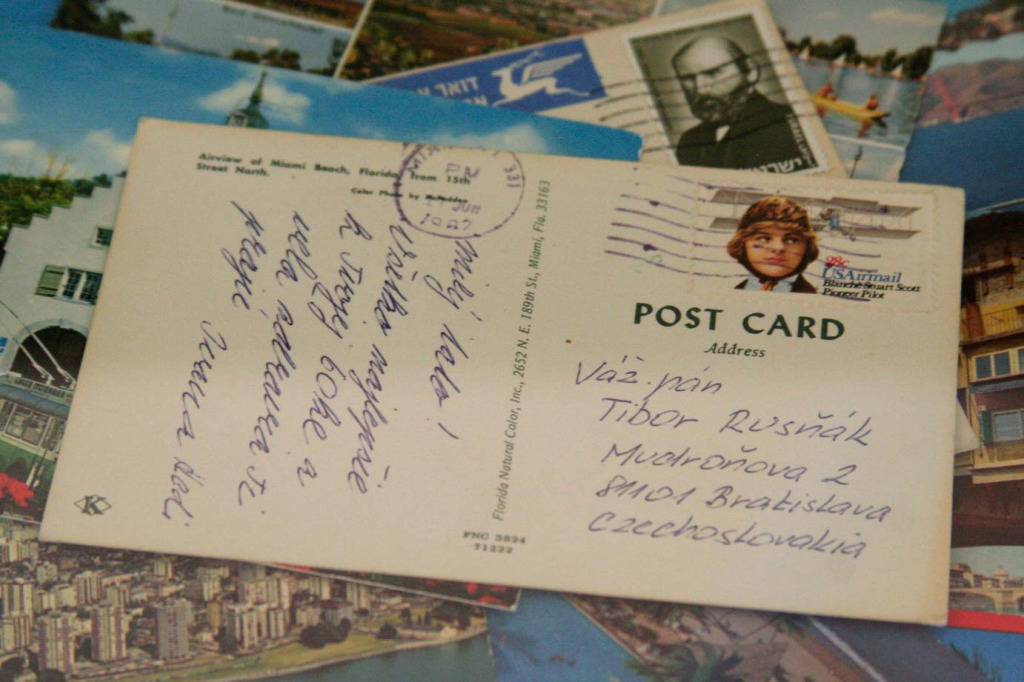 דואר
Airview of Miami Beach, Florida, from 15th
Street North.
Color Photo by
PM
JUN
1987
331
Milý
Všetko najlepšie
k Tvojej 60ke a
veľa zdravia ti
praje
Florida Natural Color, Inc., 2652 N. E. 189th St., Miami, Fla. 33163
FNC 3894
T1222
K
28c
USAirmail
Blanche Stuart Scott
Pioneer Pilot
POST CARD
Address
Váž. pán
Tibor Rusňák
Mudroňova 2
81101 Bratislava
Czechoslovakia